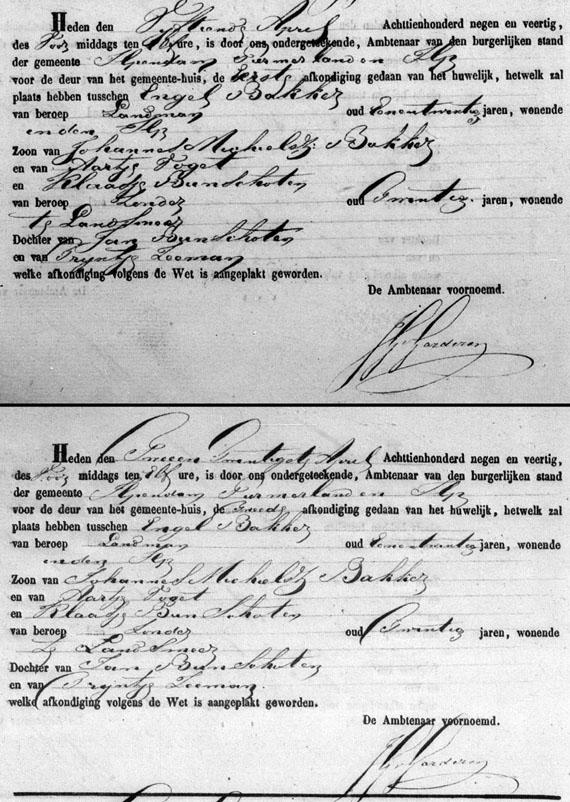 Heden den Vyftiende April Achttienhonderd negen en veertig,
des Voor middags ten Elf ure, is door ons ondergeteekende, Ambtenaar van den burgerlijken stand
der gemeente Ilpendam Purmerland en Ilp
voor de deur van het gemeente-huis, de Eerste afkondiging gedaan van het huwelijk, hetwelk zal
plaats hebben tusschen Engel Bakker
van beroep Landman oud Eenentwentig jaren, wonende
in den Ilp
Zoon van Johannes Michielsz Bakker
en van Aartje Voget
en Klaasje Bunschoten
van beroep Zonder oud Twentig jaren, wonende
te Landsmeer
Dochter van Jan Bunschoten
en van Tryntje Zeeman
welke afkondiging volgens de Wet is aangeplakt geworden.
De Ambtenaar voornoemd.
Heden den Tweeen Twentigste April Achttienhonderd negen en veertig,
des Voor middags ten Elf ure, is door ons ondergeteekende, Ambtenaar van den burgerlijken stand
der gemeente Ilpendam Purmerland en Ilp
voor de deur van het gemeente-huis, de Tweede afkondiging gedaan van het huwelijk, hetwelk zal
plaats hebben tusschen Engel Bakker
van beroep Landman oud Eenentwentig jaren, wonende
in den Ilp
Zoon van Johannes Michielsz Bakker
en van Aartje Voget
en Klaasje Bunschoten
van beroep Zonder oud Twentig jaren, wonende
te Landsmeer
Dochter van Jan Bunschoten
en van Tryntje Zeeman
welke afkondiging volgens de Wet is aangeplakt geworden.
De Ambtenaar voornoemd.